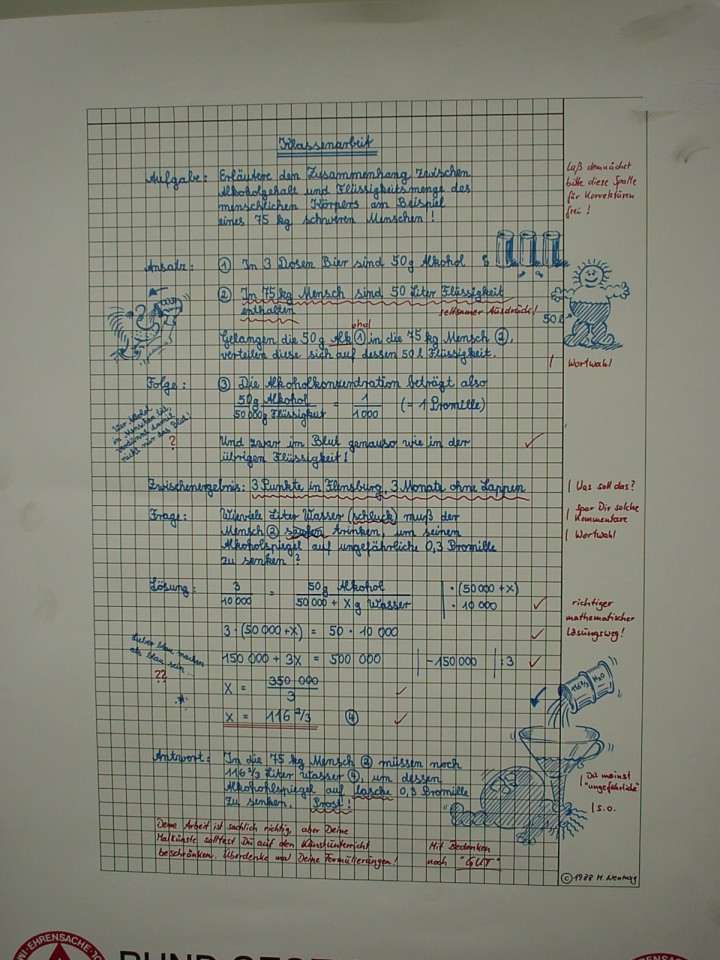 Klassenarbeit
Aufgabe: Erläutere den Zusammenhang zwischen
Alkoholgehalt und Flüssigkeitsmenge des
menschlichen Körpers am Beispiel
eines 75 kg schweren Menschen!
Laß demnächst
bitte diese Spalte
für Korrekturen
frei!
Ansatz: ① In 3 Dosen Bier sind 50g Alkohol
② In 75 kg Mensch sind 50 Liter Flüssigkeit
enthalten
seltsamer Ausdruck!
50 l
Gelangen die 50g Alkohol ① in die 75 kg Mensch ②,
verteilen diese sich auf dessen 50 l Flüssigkeit.
| Wortwahl
Folge: ③ Die Alkoholkonzentration beträgt also
50g Alkohol / 50 000g Flüssigkeit = 1 / 1000 (= 1 Promille)
?
Und zwar im Blut genauso wie in der
übrigen Flüssigkeit!
Zwischenergebnis: 3 Punkte in Flensburg, 3 Monate ohne Lappen
| Was soll das?
Frage: Wieviele Liter Wasser (schluck) muß der
Mensch ② trinken, um seinen
Alkoholspiegel auf ungefährliche 0,3 Promille
zu senken?
| spar Dir solche
Kommentare
| Wortwahl
Lösung: 3 / 10 000 = 50g Alkohol / 50 000 + X g Wasser | · (50 000 + X)
| · 10 000
3 · (50 000 + X) = 50 · 10 000
richtiger
mathematischer
Lösungsweg!
Lieber blau machen
als blau sein...
??
150 000 + 3X = 500 000 | -150 000 | : 3
X = 350 000 / 3
X = 116 2/3 ④
116 2/3 H₂O
Antwort: In die 75 kg Mensch ② müssen noch
116 2/3 Liter Wasser ④, um dessen
Alkoholspiegel auf lasche 0,3 Promille
zu senken. Prost!
| Du meinst
"ungefährliche"
| s.o.
Deine Arbeit ist sachlich richtig, aber Deine
Malkünste solltest Du auf den Kunstunterricht
beschränken. Überdenke mal Deine Formulierungen!
Mit Bedenken
noch "GUT"
© 1988 H.
EHRENSACHE